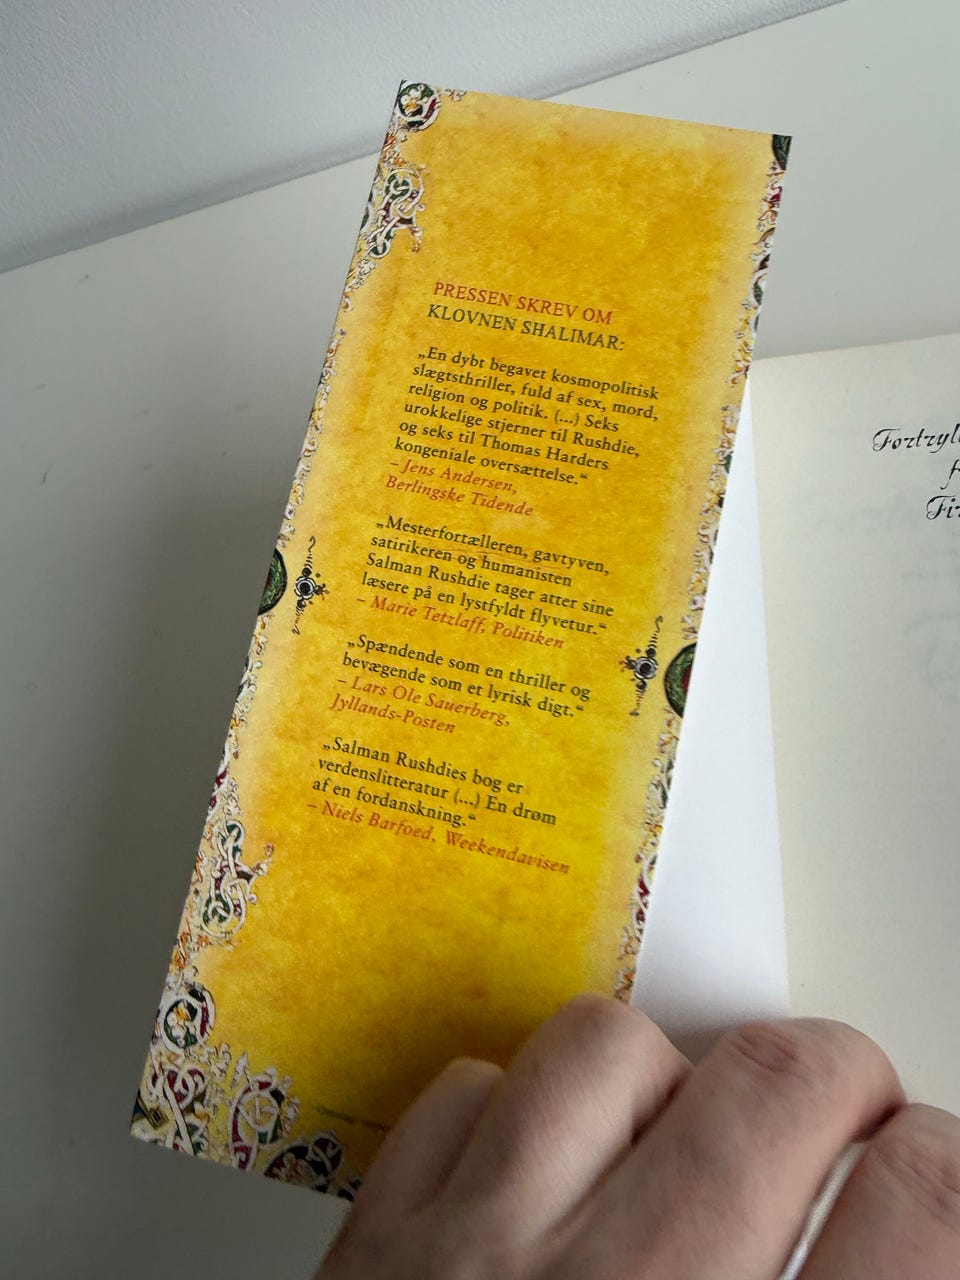 PRESSEN SKREV OM
KLOVNEN SHALIMAR:
„En dybt begavet kosmopolitisk
slægtsthriller, fuld af sex, mord,
religion og politik. (...) Seks
urokkelige stjerner til Rushdie,
og seks til Thomas Harders
kongeniale oversættelse.“
– Jens Andersen,
Berlingske Tidende
„Mesterfortælleren, gavtyven,
satirikeren og humanisten
Salman Rushdie tager atter sine
læsere på en lystfyldt flyvetur.“
– Marie Tetzlaff, Politiken
„Spændende som en thriller og
bevægende som et lyrisk digt.“
– Lars Ole Sauerberg,
Jyllands-Posten
„Salman Rushdies bog er
verdenslitteratur (...) En drøm
af en fordanskning.“
– Niels Barfoed, Weekendavisen